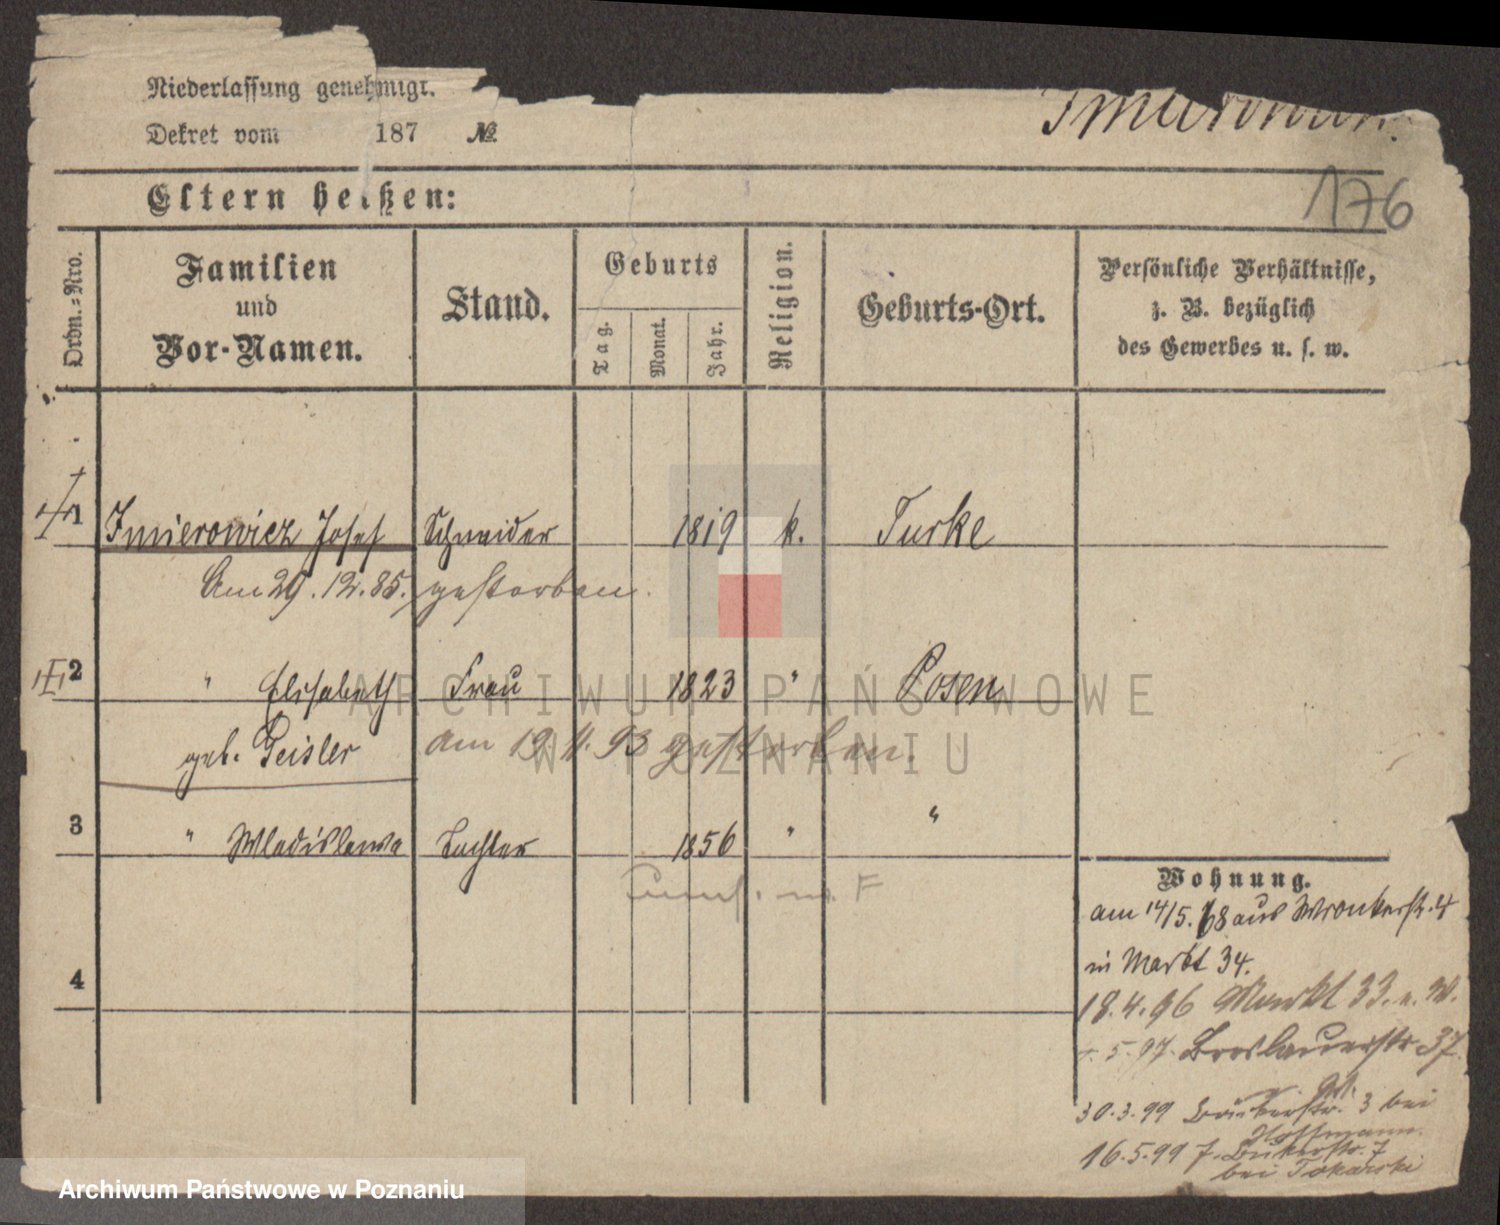 Niederlassung genehmigt.
Dekret vom 187 №
176
Eltern heißen:
Ordn.-Nro.
Familien und Vor-Namen.
Stand.
Geburts
Tag.
Monat.
Jahr.
Religion.
Geburts-Ort.
Persönliche Verhältnisse,
z. B. bezüglich
des Gewerbes u. s. w.
1 Imierowicz Josef Schneider 1819 k. Turke
Am 29.12.85. gestorben.
2 " Elisabeth Frau 1823 " Posen
geb. Geisler am 19.11.93 gestorben.
3 " Wladislawa Tochter 1856 " "
4
Wohnung.
am 14/5. 68 aus Wronkerstr. 4
in Markt 34.
18.4.96 Markt 33. n. W.
5.97. Breslauerstr 37
30.3.99 3 bei
Hoffmann.
16.5.99 7
bei Tokarski
ARCHIWUM PAŃSTWOWE
W POZNANIU
Archiwum Państwowe w Poznaniu